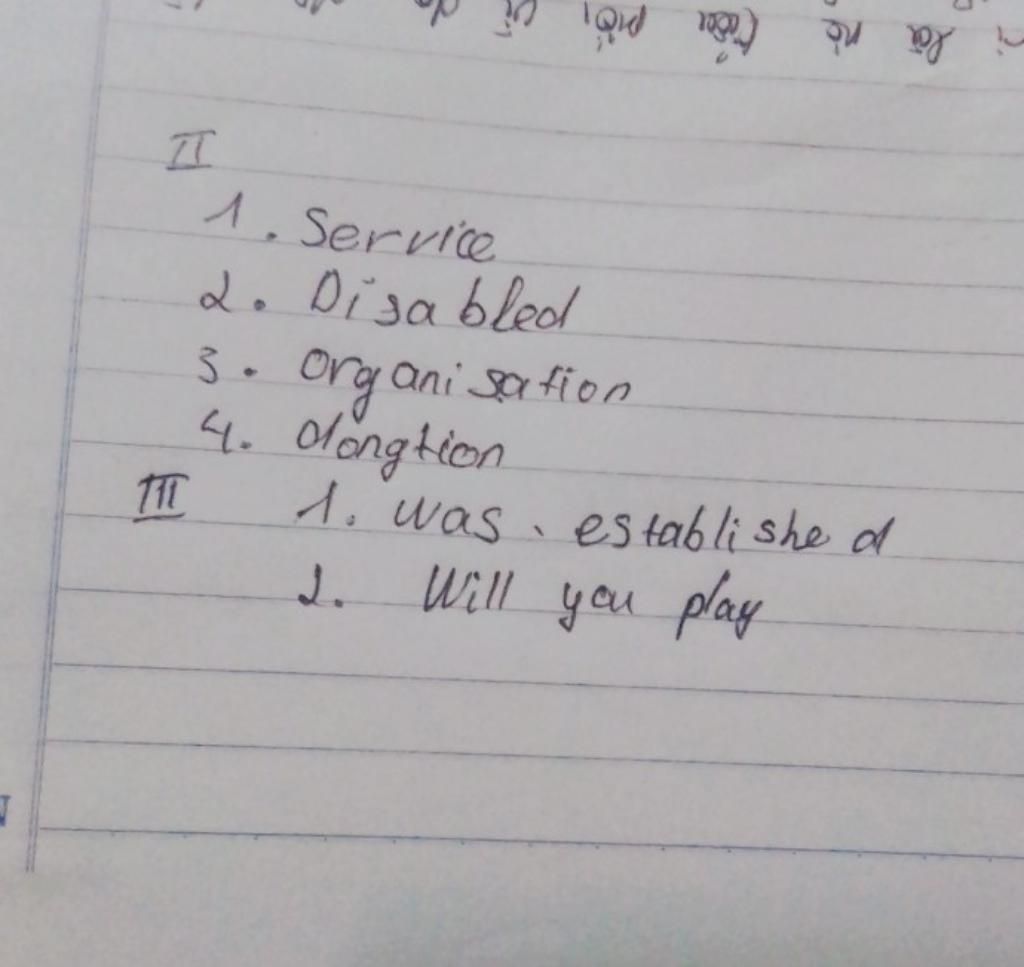 II
1. Service
2. Disabled
3. Organisation
4. dongtion
III 1. was, established
2. Will you play